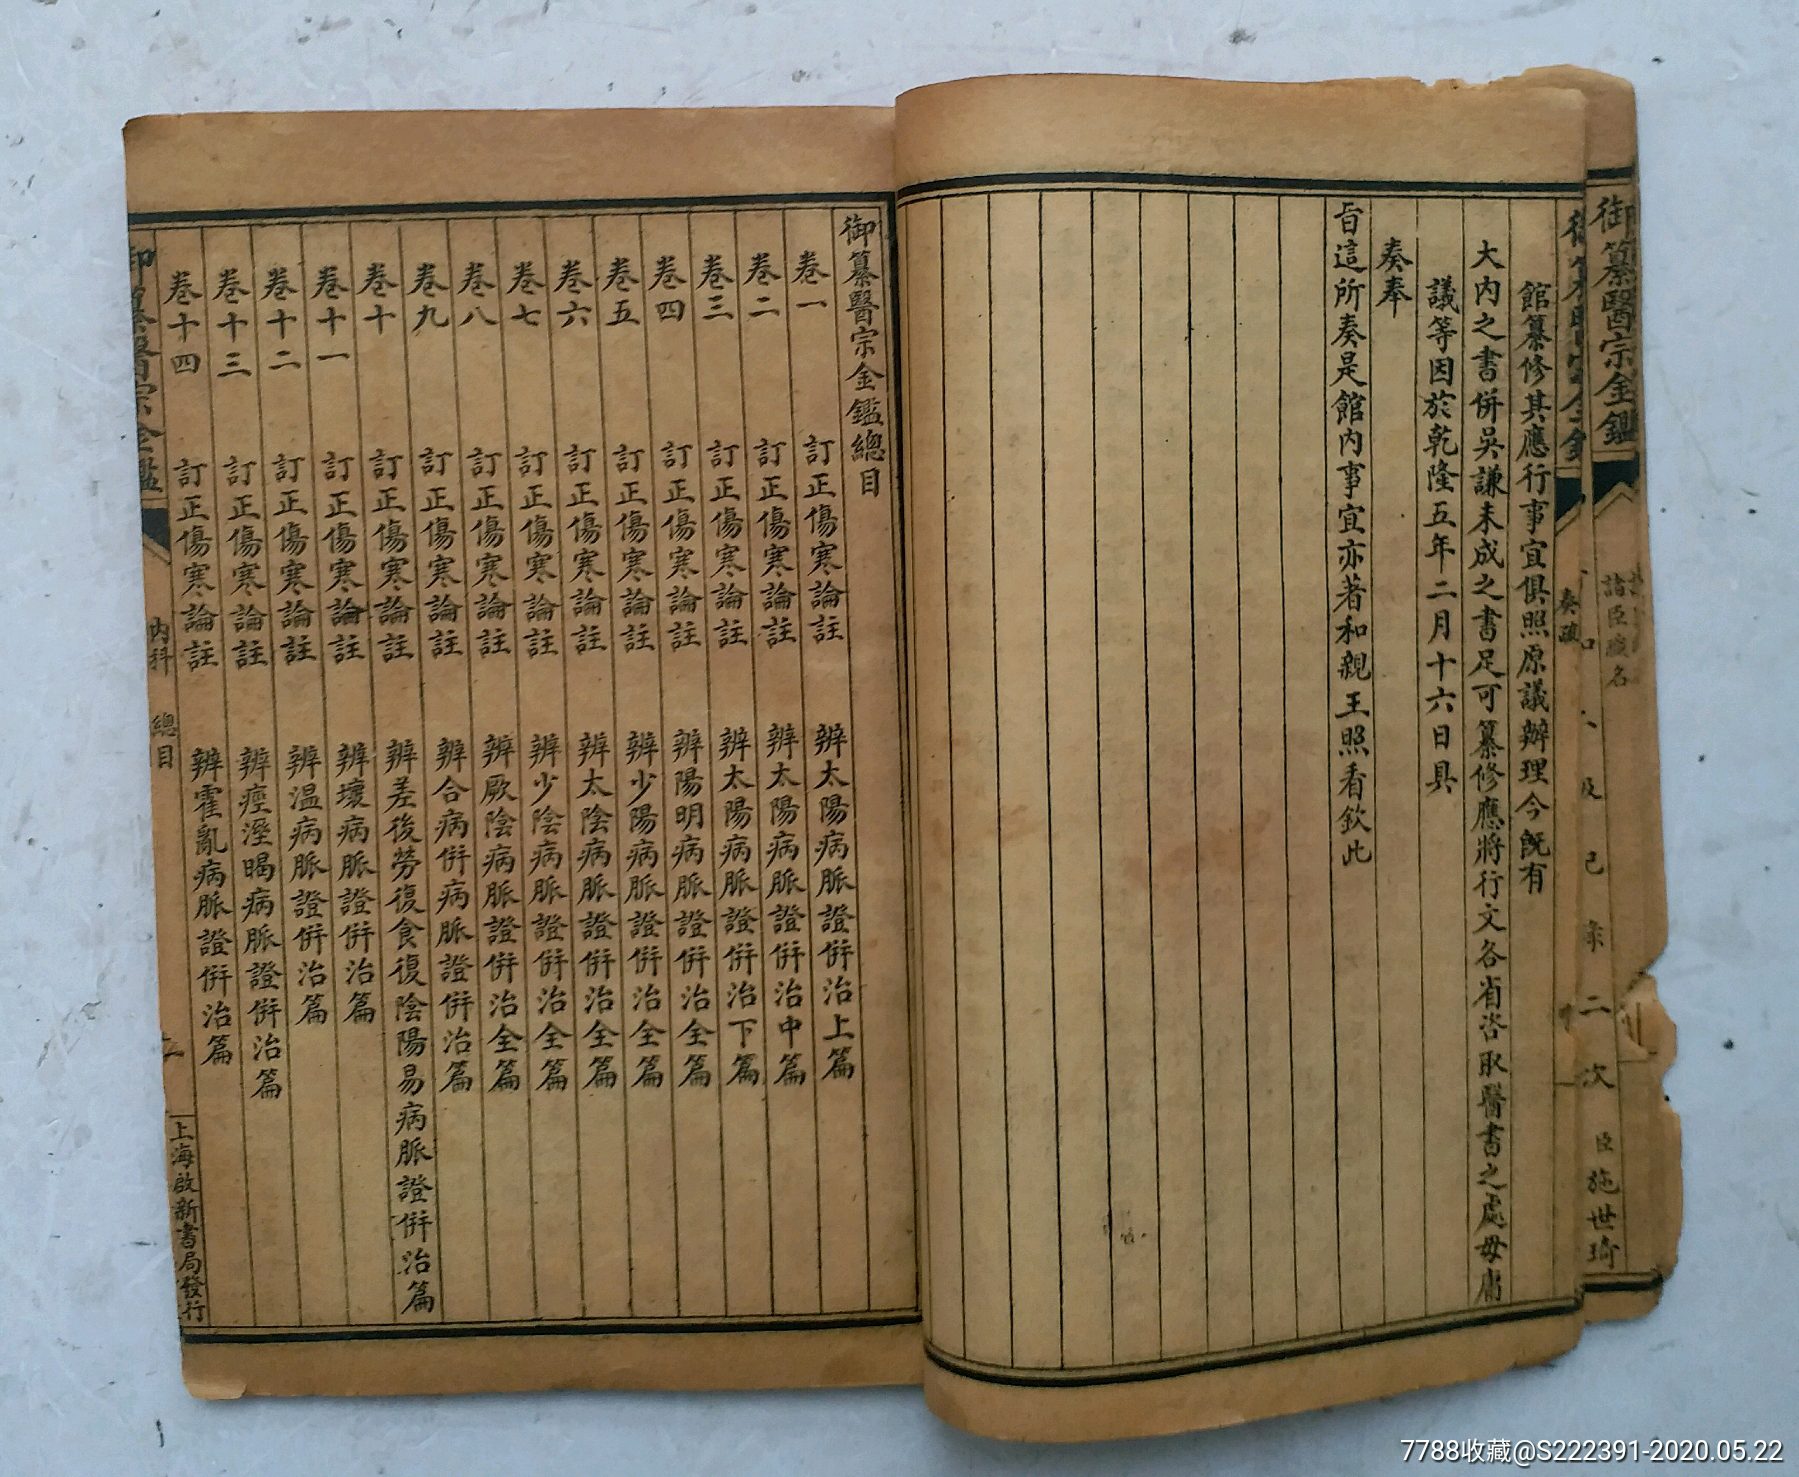 御纂醫宗金鑑
諸臣職名
臣施世琦
奏疏
館纂修其應行事宜俱照原議辦理今既有
大内之書併吳謙未成之書足可纂修應將行文各省咨取醫書之處毋庸
議等因於乾隆五年二月十六日具
奏奉
旨這所奏是館内事宜亦著和親王照看欽此
御纂醫宗金鑑總目
卷一 訂正傷寒論註 辨太陽病脈證併治上篇
卷二 訂正傷寒論註 辨太陽病脈證併治中篇
卷三 訂正傷寒論註 辨太陽病脈證併治下篇
卷四 訂正傷寒論註 辨陽明病脈證併治全篇
卷五 訂正傷寒論註 辨少陽病脈證併治全篇
卷六 訂正傷寒論註 辨太陰病脈證併治全篇
卷七 訂正傷寒論註 辨少陰病脈證併治全篇
卷八 訂正傷寒論註 辨厥陰病脈證併治全篇
卷九 訂正傷寒論註 辨合病併病脈證併治篇
卷十 訂正傷寒論註 辨差後勞復食復陰陽易病脈證併治篇
卷十一 訂正傷寒論註 辨壞病脈證併治篇
卷十二 訂正傷寒論註 辨温病脈證併治篇
卷十三 訂正傷寒論註 辨痙溼暍病脈證併治篇
卷十四 訂正傷寒論註 辨霍亂病脈證併治篇
御纂醫宗金鑑 内科 總目 上海啟新書局發行
7788收藏@S222391-2020.05.22